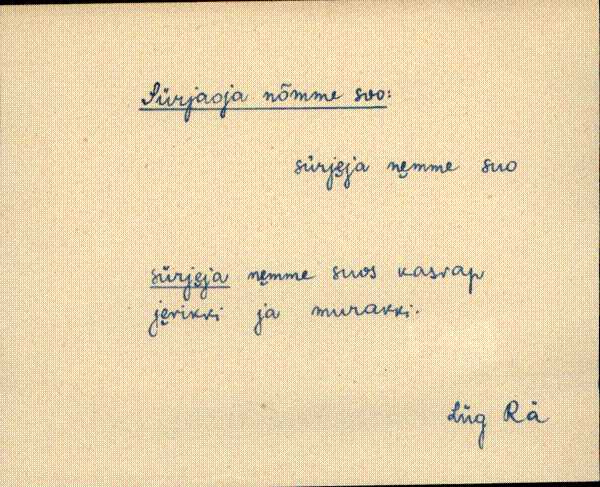 Sürjaoja nõmme soo:
sürjẹja nẹmme suo
sürjẹja nẹmme suos kasvap
jẹvikki ja murakki.
Lüg Rä